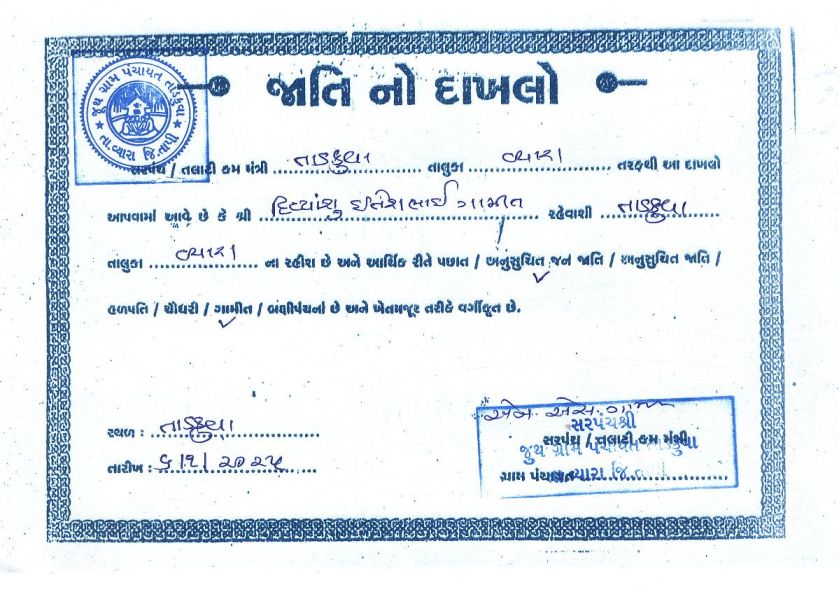 જુથ ગ્રામ પંચાયત તાડકુવા
તા.વ્યારા જિ.તાપી
જાતિ નો દાખલો
સરપંચ / તલાટી કમ મંત્રી તાડકુવા તાલુકા વ્યારા તરફથી આ દાખલો
આપવામાં આવે છે કે શ્રી દિવ્યાંશુ ઈતેશભાઈ ગામીત રહેવાશી તાડકુવા
તાલુકા વ્યારા ના રહીશ છે અને આર્થિક રીતે પછાત / અનુસુચિત જન જાતિ / અનુસુચિત જાતિ /
હળપતિ / ચૌધરી / ગામીત / બક્ષીપંચનાં છે અને ખેતમજૂર તરીકે વર્ગીકૃત છે.
એમ. એસ.
સરપંચશ્રી
સ્થળ : તાડકુવા
સરપંચ / તલાટી કમ મંત્રી
જુથ ગ્રામ પંચાયત તાડકુવા
તારીખ : ૬/૧/૨૦૨૫
ગ્રામ પંચાયત
વ્યારા જિ.